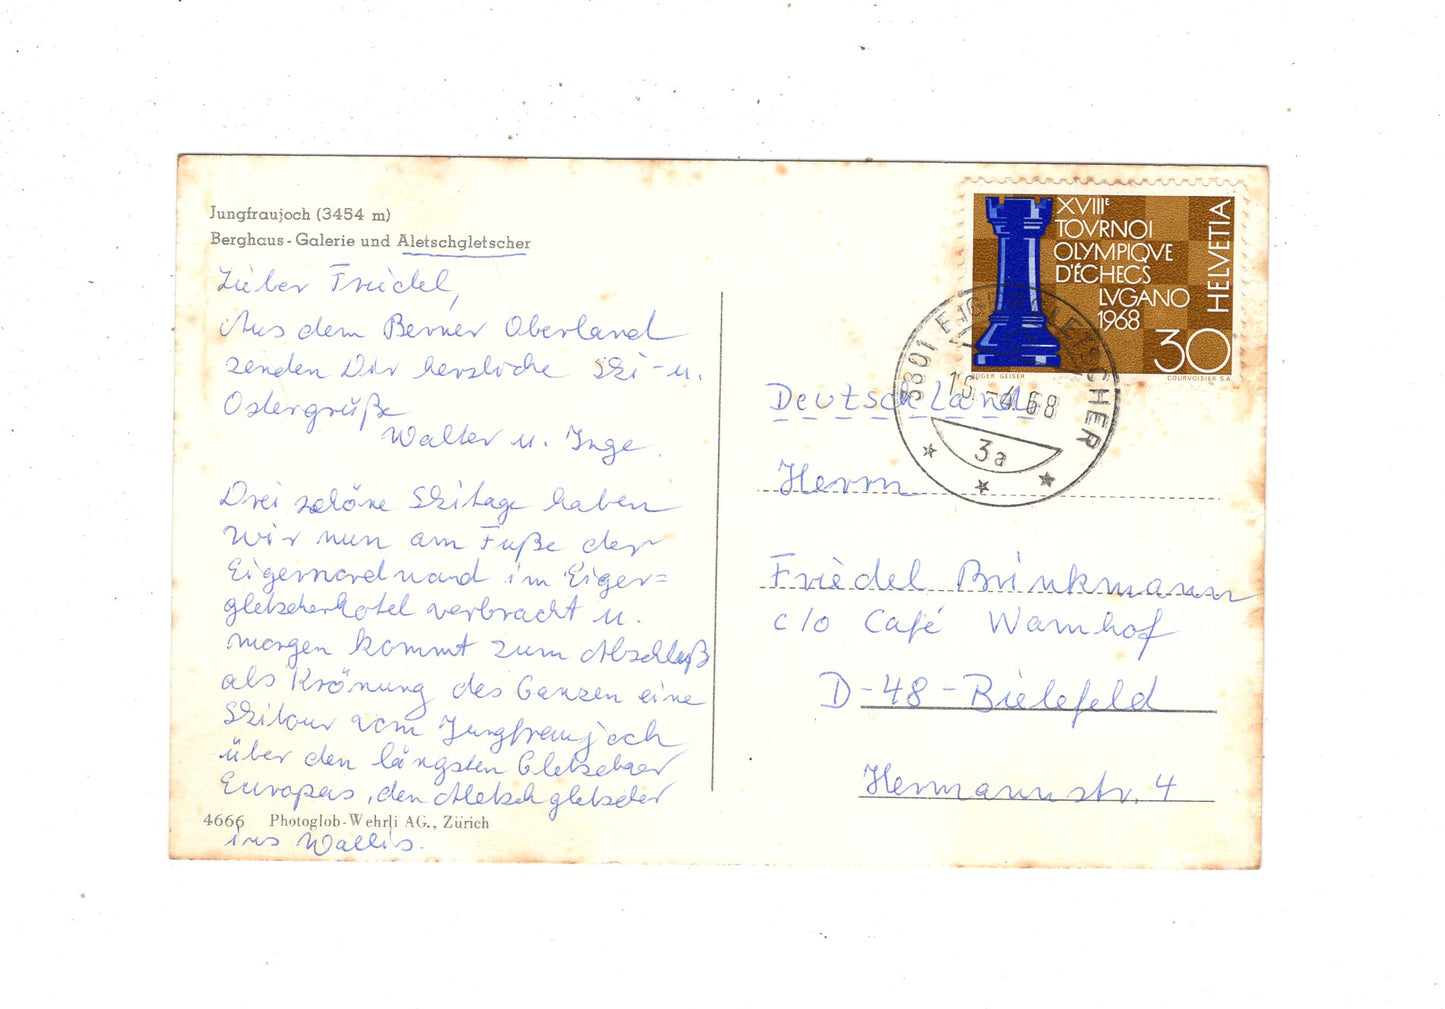 Jungfraujoch (3454 m)
Berghaus-Galerie und Aletschgletscher
Lieber Friedel,
Aus dem Berner Oberland
senden Dir herzliche Ski-u.
Ostergrüße
Walter u. Inge.
Drei schöne Skitage haben
wir nun am Fuße der
Eigernordwand im Eiger=
gletscherhotel verbracht u.
morgen kommt zum Abschluß
als Krönung des Ganzen eine
Skitour vom Jungfraujoch
über den längsten Gletscher
Europas, den Aletschgletscher
ins Wallis.
4666 Photoglob-Wehrli AG., Zürich
XVIIIE
TOVRNOI
OLYMPIQVE
D'ÉCHECS
LVGANO
1968
HELVETIA
30
ROGER GEISER
COURVOISIER S.A.
3801 EIGERGLETSCHER
16.-4.68
3a
Deutschland
Herrn
Friedel Brinkmann
c/o Café Warnhof
D-48-Bielefeld
Hermannstr. 4